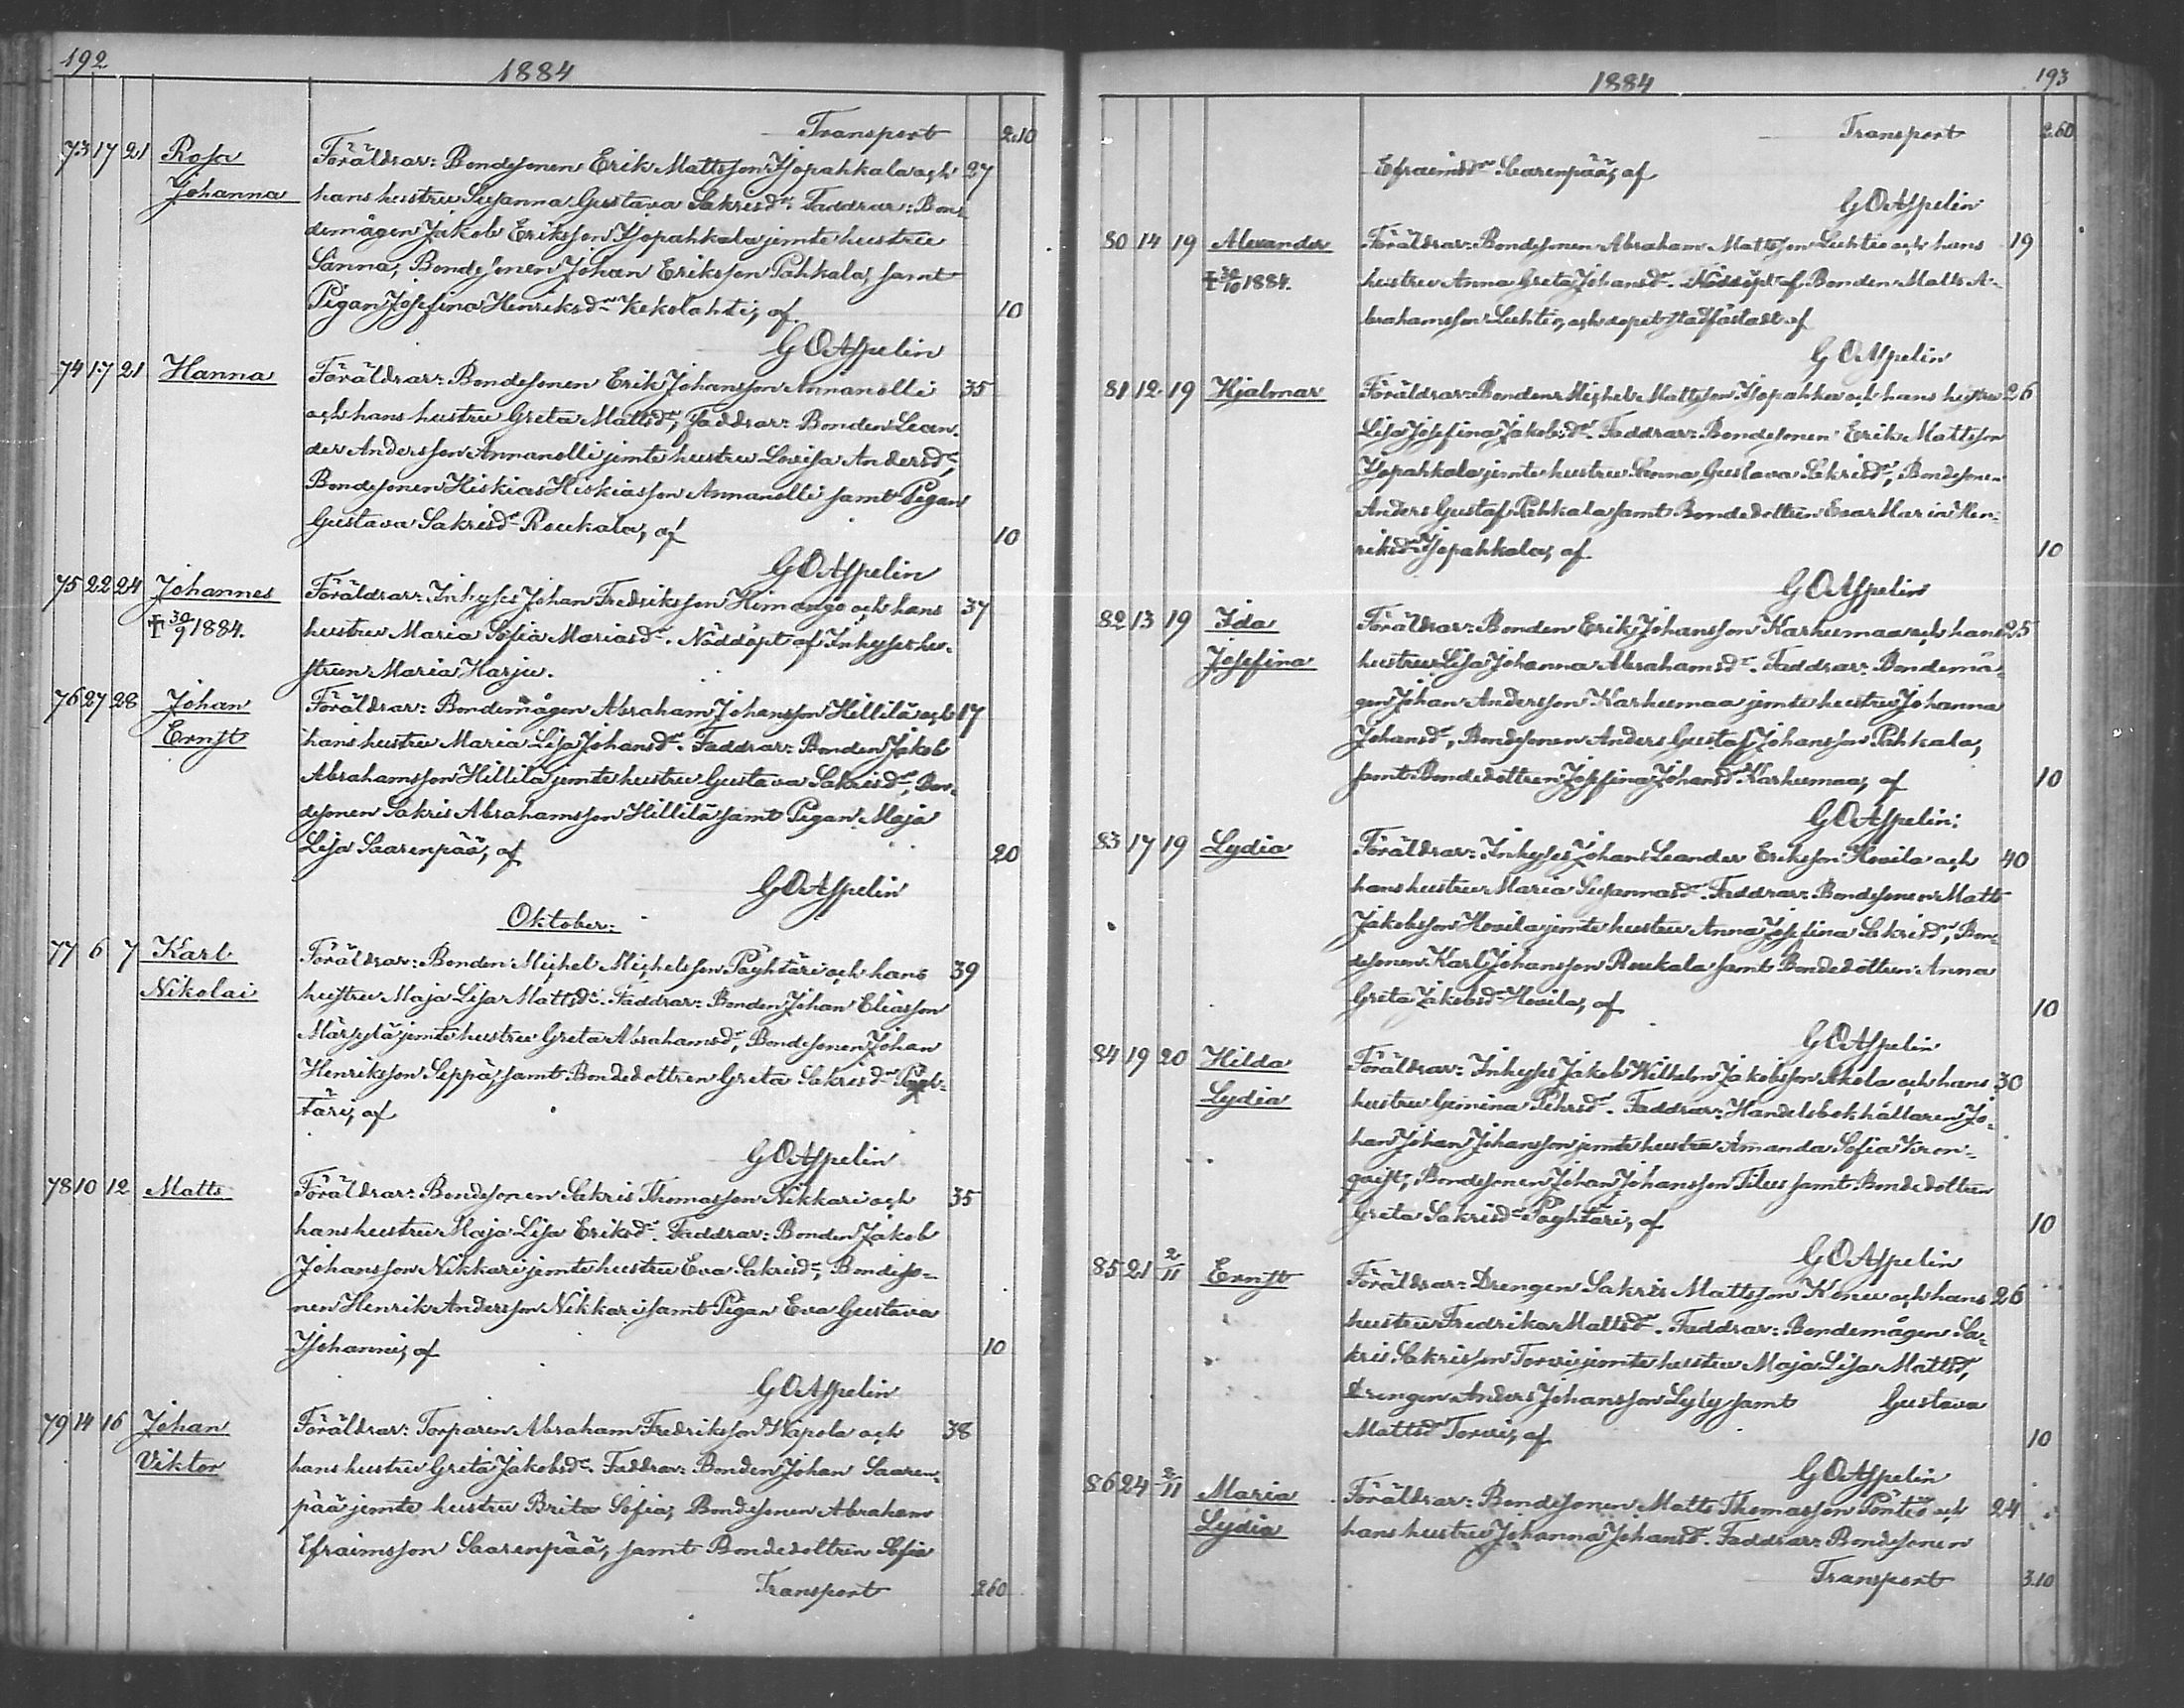 192
1884
Transport 2.10
73 17 21 Rosa Föräldrar: Bondesonen Erik Mattsson Ysopahkala och 27
Johanna hans hustru Susanna Gustava Sakrisdr. Faddrar: Bon-
demågen Jakob Eriksson Ysopahkala jemte hustru
Sanna, Bondesonen Johan Eriksson Pahkala, samt
Pigan Josefina Henriksdr Kekolahti, af 10
G O Aspelin
74 17 21 Hanna Föräldrar: Bondesonen Erik Johansson Annanolli 35
och hans hustru Greta Mattsdr, Faddrar: Bonden Lean-
der Andersson Annanolli jemte hustru Lovisa Andersdr,
Bondesonen Hiskias Hiskiasson Annanolli samt Pigan
Gustava Sakrisdr Roukala, af 10
G O Aspelin
75 22 24 Johannes Föräldrar: Inhyses Johan Fredriksson Himango och hans 37
† 30/9 1884. hustru Maria Sofia Mariasdr. Nöddöpt af Inhyses hu-
strun Maria Harju.
76 27 28 Johan Föräldrar: Bondemågen Abraham Johansson Hillilä och 17
Ernst hans hustru Maria Lisa Johansdr. Faddrar: Bonden Jakob
Abrahamsson Hillilä jemte hustru Gustava Sakrisdr, Bon-
desonen Sakris Abrahamsson Hillilä samt Pigan Maja
Lisa Saarenpää, af 20
G O Aspelin
Oktober:
77 6 7 Karl Föräldrar: Bonden Michel Michelsson Pöyhtäri och hans 39
Nikolai hustru Maja Lisa Mattsdr. Faddrar: Bonden Johan Eliasson
Märsylä jemte hustru Greta Abrahamsdr, Bondesonen Johan
Henriksson Seppä, samt Bondedottren Greta Sakrisdr Pöyh-
täri, af
G O Aspelin
78 10 12 Matts Föräldrar: Bondesonen Sakris Thomasson Nikkari och 35
hans hustru Maja Lisa Eriksdr. Faddrar: Bonden Jakob
Johansson Nikkari jemte hustru Eva Sakrisdr, Bondeso-
nen Henrik Andersson Nikkari samt Pigan Eva Gustava
Isohanni, af 10
G O Aspelin
79 14 16 Johan Föräldrar: Torparen Abraham Fredriksson Wapola och 38
Viktor hans hustru Greta Jakobsdr. Faddrar: Bonden Johan Saaren-
pää jemte hustru Brita Sofia, Bondesonen Abraham
Efraimsson Saarenpää, samt Bondedottren Sofia
Transport 2.60
193
1884
Transport 2.60
Efraimsdr Saarenpää, af
G O Aspelin
80 14 19 Alexander Föräldrar: Bondesonen Abraham Mattsson Luhtio och hans 19
† 30/10 1884. hustru Anna Greta Johansdr. Nöddöpt af Bonden Matts A-
brahamsson Luhtio, och dopet stadfästadt af
G O Aspelin
81 12 19 Hjalmar Föräldrar: Bonden Michel Mattsson Ysopahka och hans hustru 26
Lisa Josefina Jakobsdr. Faddrar: Bondesonen Erik Mattsson
Ysopahkala jemte hustru Sanna Gustava Sakrisdr, Bondesonen
Anders Gustaf Pahkala samt Bondedottren Eva Maria Hen-
riksdr Ysopahkala, af 10
G O Aspelin
82 13 19 Ida Föräldrar: Bonden Erik Johansson Karhumaa och hans 25
Josefina hustru Lisa Johanna Abrahamsdr. Faddrar: Bondemå-
gen Johan Andersson Karhumaa jemte hustru Johanna
Johansdr, Bondesonen Anders Gustaf Johansson Pahkala,
samt Bondedottren Josefina Johansdr Karhumaa, af 10
G O Aspelin:
83 17 19 Lydia Föräldrar: Inhyses Johan Leander Eriksson Houila och 40
hans hustru Maria Susannasdr. Faddrar: Bondesonen Matts
Jakobsson Houila jemte hustru Anna Josefina Sakrisdr, Bon-
desonen Karl Johansson Roukala samt Bondedottren Anna
Greta Jakobsdr Houila, af 10
G O Aspelin
84 19 20 Hilda Föräldrar: Inhyses Jakob Wilhelm Jakobsson Akola och hans 30
Lydia hustru Gemina Pehrsdr. Faddrar: Handelsbokhållaren Jo-
han Johan Johansson jemte hustru Amanda Sofia Kron-
qvist, Bondesonen Johan Johansson Tilus samt Bondedottren
Greta Sakrisdr Pöyhtäri, af 10
G O Aspelin
85 21 2/11 Ernst Föräldrar: Drengen Sakris Mattsson Konu och hans 26
hustru Fredrika Mattsdr. Faddrar: Bondemågen Sa-
kris Sakrisson Torvi jemte hustru Maja Lisa Mattsdr,
Drengen Anders Johansson Lyly samt Gustava
Mattsdr Torvi, af 10
G O Aspelin
86 24 2/11 Maria Föräldrar: Bondesonen Matts Thomasson Pöntiö och 24
Lydia hans hustru Johanna Johansdr. Faddrar: Bondesonen
Transport 3.10